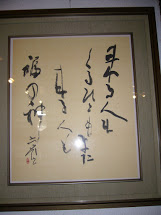 来る人も
くるひともまた
来る人も
福の神